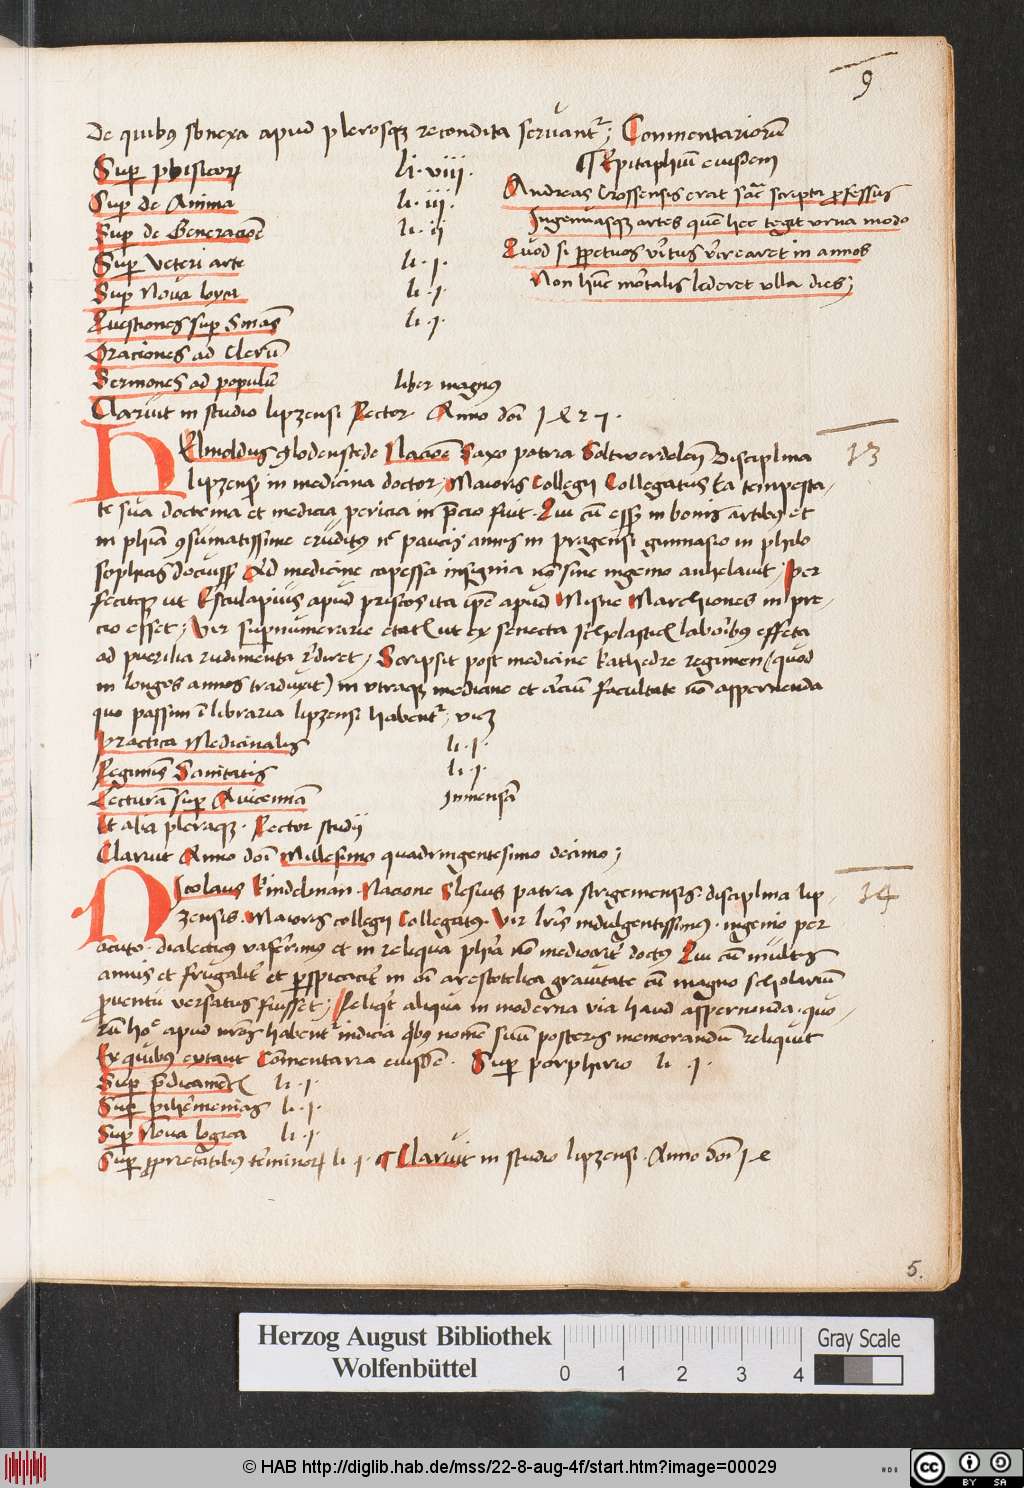 9
De quibus sbnexa apud plerosqꝫ recondita seruantʳ; Commentariorū
Sup phisicorꝝ li. viii.
Sup de Anima li. iii.
Sup de Generacōe li. ij
Sup Veteri arte li. j.
Sup Noua loyca li. j.
Questiones sup Smās li. j.
Oraciones ad Clerū
Sermones ad populū liber magnus
¶ Epitaphiū eiusdem
Andreas Crossensis erat sāc scripta professus
Ingenuasqꝫ artes quē hec tegit vrna modo
Quod si ꝑpetuos vītus v̄irearet in annos
Non hūc mōrtalis lederet vlla dies;
Claruit in studio lipzensi Rector. Anno doī 1427.
13
HElmoldus Glodenstede Nacōe Saxo patria Soltwerdelen̄ Disciplina
lipzensis in medicina doctor, Maioris Collegij Collegatus Ea tempesta-
te sua doctrina et medicīa pericia in p̄cio fuit. Qui cū essꝫ in bonis artibus et
in phīa ꝯsumatissime eruditus nᶜ paucis annis in pragensi gimnasio in philo
sophias docuissꝫ Ad medicine capessa insignia nō sine ingenio anhelauit, per
fecitqꝫ ut Esculapius apud priscos ita ip̄e apud Misne Marchiones in pre-
cio esset; Vir supnumerarie etatis ut ex senecta scholasticis laboībus effeta
ad puerilia rudimenta r̄diret, Scripsit post medicine kathedre regimen (quod
in longos annos traduxit) in vtraqꝫ medicine et arciū facultate nō aspernenda
quo passim ī libraria lipzensi habentʳ, vicꝫ
Practica Medicinalis li. j.
Regimīs Sanitatis li. j.
Lecturā sup Auicennā Inmensā
Et alia pleraqꝫ. Rector studij
Claruit Anno doī Millesimo quadringentesimo decimo;
14
NIcolaus Kindelman. Nacione Slesius patria strigemensis. disciplina lip-
zensis. Maioris collegij Collegatus. Vir lr̄is indulgentissimus. ingenio per
acuto. dialecticus vaferrimus et in reliqua phīa nō mediocrit̄ doctus Qui cū multis
annis et frugalit̄ et ꝑspicacit̄ in oī arestotelica grauitate cū magno scholariū
ꝓuentu versatus fuisset; Reliqt̄ aliqua in moderna via haud aspernenda. quo-
rū hoᵉ apud nr̄os habentʳ indicia qⁱbus nomē suū posteris memorandū reliquit
Ex quibus extant Cōmentaria eiusdē. Sup porphirio li. j.
Sup p̄dicamētis li. j.
Sup pihermenias li. j.
Sup Noua logica li. j.
Sup ꝓprietatibus t̄minorꝝ li j. ¶ Claruit in studio lipzensi. Anno doī 14
5.
Herzog August Bibliothek
Wolfenbüttel
0 1 2 3 4
Gray Scale
© HAB http://diglib.hab.de/mss/22-8-aug-4f/start.htm?image=00029
cc BY SA